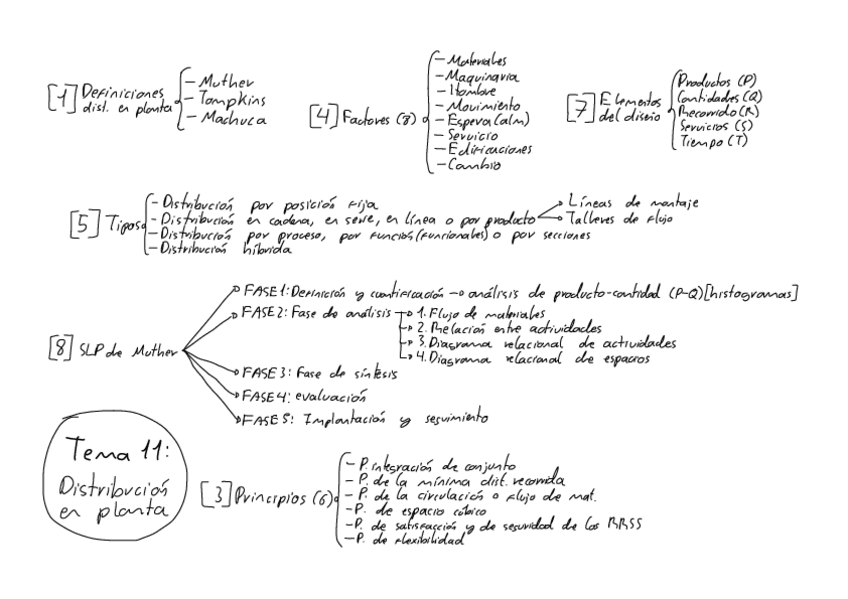 [1] Definiciones dist. en planta
- Muther
- Tompkins
- Machuca
[4] Factores (8)
- Materiales
- Maquinaria
- Hombre
- Movimiento
- Espera (alm)
- Servicio
- Edificaciones
- Cambio
[7] Elementos del diseño
Productos (P)
Cantidades (Q)
Recorrido (R)
Servicios (S)
Tiempo (T)
[5] Tipos
- Distribución por posición fija
- Distribución en cadena, en serie, en línea o por producto
Líneas de montaje
Talleres de flujo
- Distribución por proceso, por función (funcionales) o por secciones
- Distribución híbrida
[8] SLP de Muther
FASE 1: Definición y cuantificación → análisis de producto-cantidad (P-Q) [histogramas]
FASE 2: Fase de análisis
1. Flujo de materiales
2. Relación entre actividades
3. Diagrama relacional de actividades
4. Diagrama relacional de espacios
FASE 3: Fase de síntesis
FASE 4: evaluación
FASE 5: Implantación y seguimiento
Tema 11:
Distribución
en planta
[3] Principios (6)
- P. integración de conjunto
- P. de la mínima dist. recorrida
- P. de la circulación o flujo de mat.
- P. de espacio cúbico
- P. de satisfacción y de seguridad de los RRSS
- P. de flexibilidad